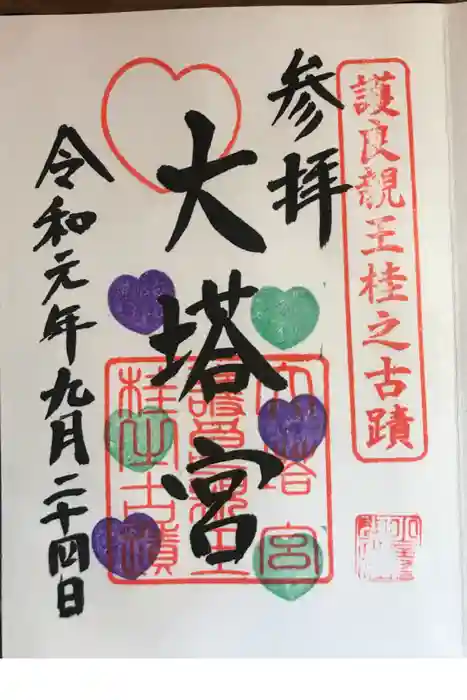 護良親王桂之古蹟
参拝
大塔宮
令和元年九月二十四日
大塔宮
護良親王
桂之古蹟